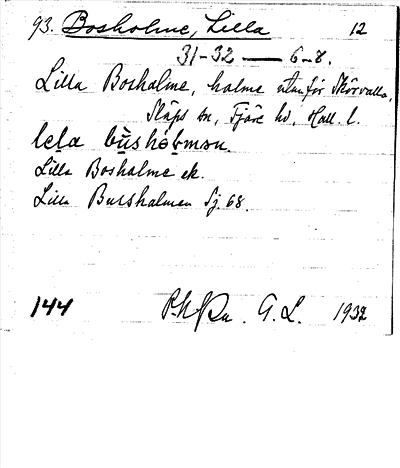 93. Bosholme, Lilla 12
31-32 — 6-8.
Lilla Bosholme, holme utanför Skörvalla,
Släps sn, Fjäre hd, Hall. l.
Lilla Bosholme ek.
Lilla Bursholmen Sj. 68.
144 G. L. 1932